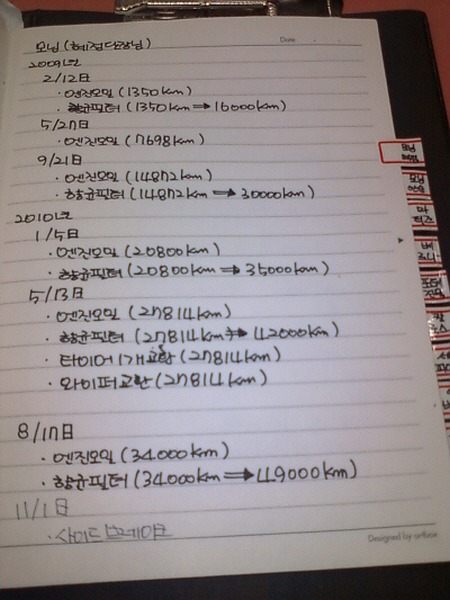 모닝 (혜정담장님)
Date . .
2009년
2/12日
· 엔진오일 (1350km)
· 향균필터 (1350km ⇒ 16000km)
5/27日
· 엔진오일 (7698km)
9/21日
· 엔진오일 (14872km)
· 향균필터 (14872km ⇒ 30000km)
2010년
1/5日
· 엔진오일 (20800km)
· 향균필터 (20800km ⇒ 35000km)
5/13日
· 엔진오일 (27814km)
· 향균필터 (27814km ⇒ 42000km)
· 타이어 1개 교환 (27814km)
· 와이퍼교환 (27814km)
8/17日
· 엔진오일 (34000km)
· 향균필터 (34000km ⇒ 49000km)
11/1日
· 사이드 브레이크
Designed by artbox
모닝
모닝